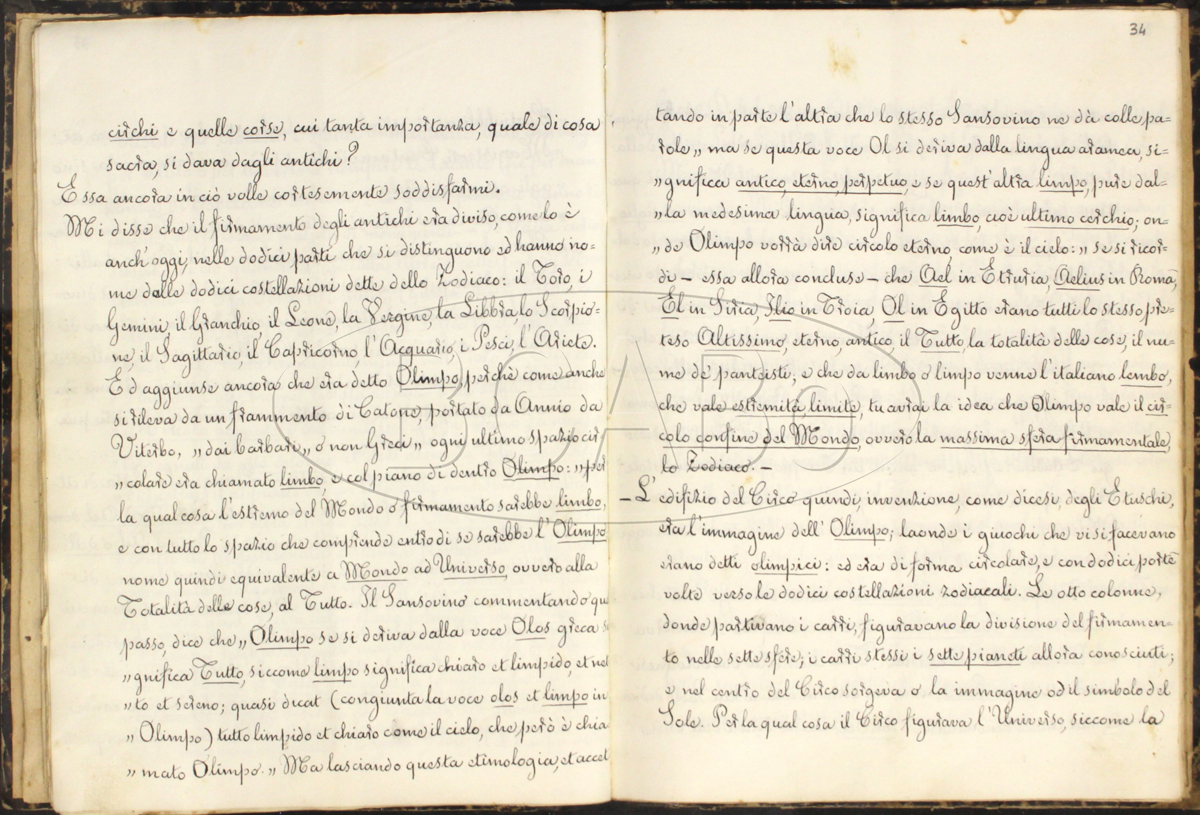 circhi e quelle corse, cui tanta importanza, quale di cosa
sacra, si dava dagli antichi?
Essa ancora in ciò volle cortesemente soddisfarmi.
Mi disse che il firmamento degli antichi era diviso, come lo è
anch'oggi, nelle dodici parti che si distinguono ed hanno no=
me dalle dodici costellazioni dette dello Zodiaco: il Toro, i
Gemini, il Granchio, il Leone, la Vergine, la Libbra, lo Scorpio=
ne, il Sagittario, il Capricorno, l'Acquario, i Pesci, l'Ariete.
Ed aggiunse ancora che era detto Olimpo, perchè come anche
si rileva da un frammento di Catone, portato da Annio da
Viterbo, „ dai barbari „ o non Greci „ ogni ultimo spazio cir
„ colare era chiamato limbo, e col piano di dentro Olimpo: „ per
la qual cosa l'estremo del Mondo o firmamento sarebbe limbo,
e con tutto lo spazio che comprende entro di se sarebbe l'Olimpo
nome quindi equivalente a Mondo ad Universo, ovvero alla
Totalità delle cose, al Tutto. Il Sansovino commentando qu
passo, dice che „ Olimpo se si deriva dalla voce Olos greca s
„ gnifica Tutto, siccome limpo significa chiaro et limpido, et net
„ to et sereno; quasi dicat (congiunta la voce olos et limpo in
„ Olimpo) tutto limpido et chiaro come il cielo, che però è chia
„ mato Olimpo. „ Ma lasciando questa etimologia, et accet
34
tando in parte l'altra che lo stesso Sansovino ne dà colle pa=
role „ ma se questa voce Ol si deriva dalla lingua aramea, si=
„ gnifica antico, eterno, perpetuo, e se quest'altra limpo, pure dal=
„ la medesima lingua, significa limbo, cioè ultimo cerchio; on=
„ de Olimpo vorrà dire circolo eterno, come è il cielo: „ se si ricor=
di — essa allora concluse — che Ael in Etruria, Aelius in Roma,
El in Siria, Ilio in Troia, Ol in Egitto erano tutti lo stesso pre=
teso Altissimo, eterno, antico, il Tutto, la totalità delle cose, il nu=
me de' panteisti; e che da limbo o limpo venne l'italiano lembo,
che vale estremità, limite, tu avrai la idea che Olimpo vale il cir=
colo confine del Mondo, ovvero la massima sfera firmamentale,
lo Zodiaco. —
— L'edifizio del Circo quindi, invenzione, come dicesi, degli Etuschi,
era l'immagine dell'Olimpo; laonde i giuochi che vi si facevano
erano detti olimpici: ed era di forma circolare, e con dodici porte
volte verso le dodici costellazioni zodiacali. Le otto colonne,
donde partivano i carri, figuravano la divisione del firmamen=
to nelle sette sfere; i carri stessi i sette pianeti allora conosciuti;
e nel centro del Circo sorgeva o la immagine od il simbolo del
Sole. Per la qual cosa il Circo figurava l'Universo, siccome la